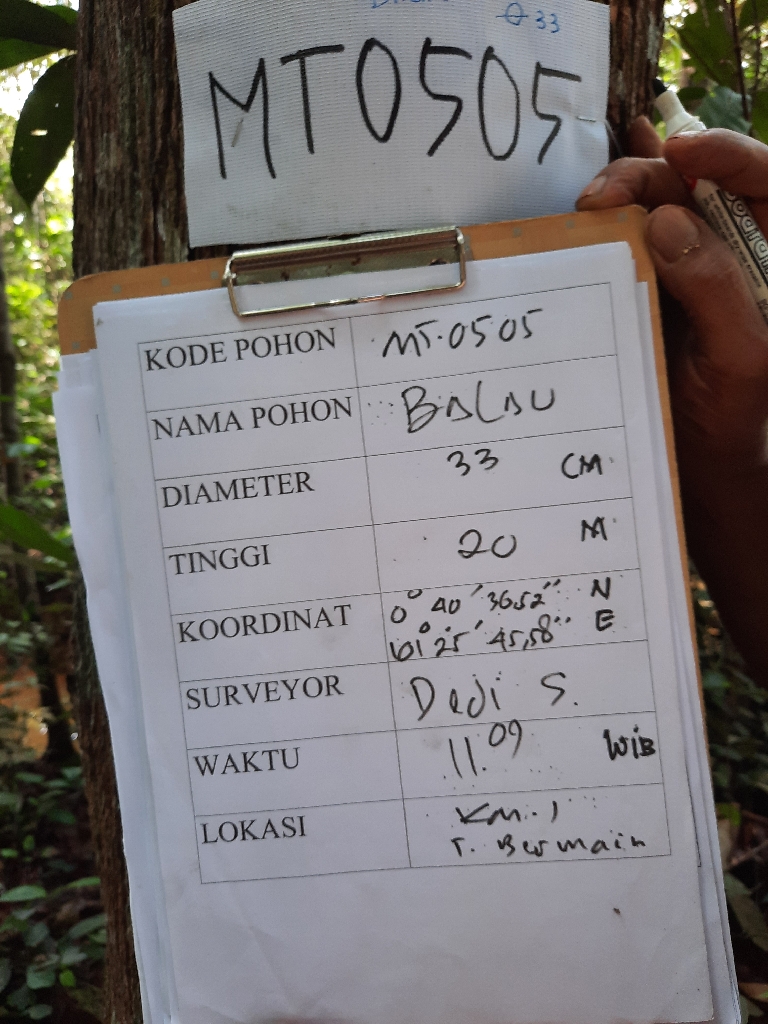 Ø 33
MT0505
KODE POHON MT.0505
NAMA POHON BALAU
DIAMETER 33 CM
TINGGI 20 M
KOORDINAT 0° 40' 36.52'' N
101° 25' 45,58'' E
SURVEYOR Dedi S.
WAKTU 11.09 WIB
LOKASI KM.1
T. Bermain